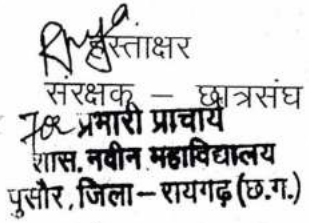 हस्ताक्षर
संरक्षक – छात्रसंघ
For प्रभारी प्राचार्य
शास. नवीन महाविद्यालय
पुसौर, जिला – रायगढ़ (छ.ग.)